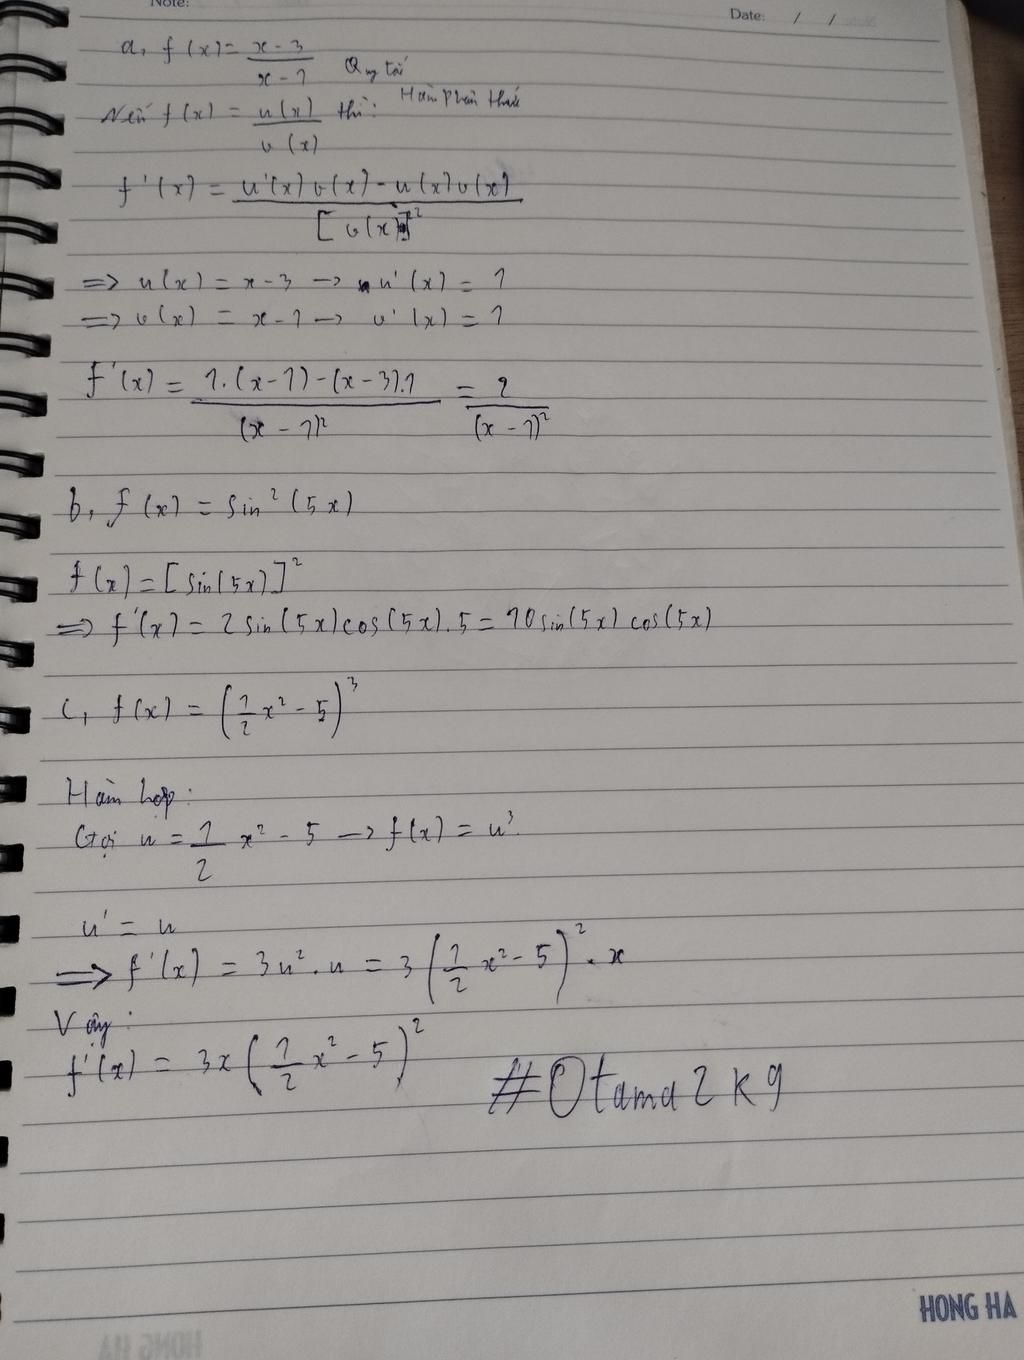 Note:
Date: / /
a, f(x) = \frac{x-3}{x-1} Quy tắc
Nếu f(x) = \frac{u(x)}{v(x)} thì: Hàm phân thức
f'(x) = \frac{u'(x)v(x) - u(x)v(x)}{[v(x)]^2}
=> u(x) = x - 3 -> u'(x) = 1
=> v(x) = x - 1 -> v'(x) = 1
f'(x) = \frac{1.(x-1)-(x-3).1}{(x-1)^2} = \frac{2}{(x-1)^2}
b, f(x) = sin²(5x)
f(x) = [sin(5x)]²
=> f'(x) = 2sin(5x)cos(5x).5 = 10sin(5x)cos(5x)
c, f(x) = (\frac{1}{2}x² - 5)³
Hàm hợp:
Gọi u = \frac{1}{2}x² - 5 -> f(x) = u³
u' = u
=> f'(x) = 3u².u = 3(\frac{1}{2}x² - 5)².x
Vậy:
f'(x) = 3x(\frac{1}{2}x² - 5)²
#Otama2k9
HONG HA